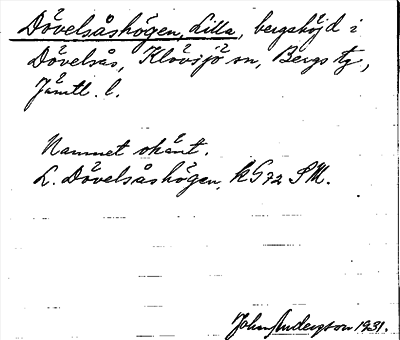 Dövelsåshögen, Lilla, bergshöjd i
Dövelsås, Klövsjö sn, Bergs tg,
Jämtl. l.
Namnet okänt.
L. Dövelsåshögen, kG72 SM.
John Anderzson 1931.